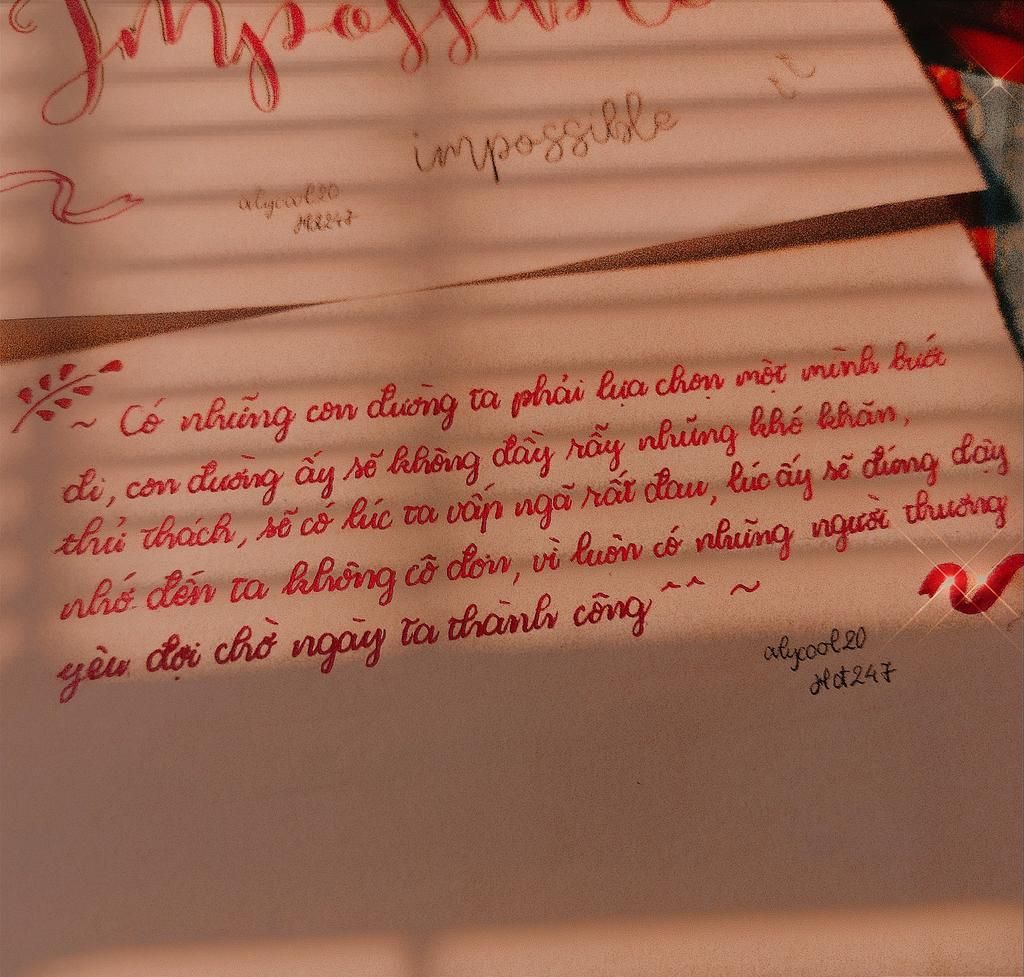 Impossible
impossible
alycool20
Hd247
~ Có những con đường ta phải lựa chọn một mình bước
đi, con đường ấy sẽ không đầy rẫy những khó khăn,
thử thách, sẽ có lúc ta vấp ngã rất đau, lúc ấy sẽ đứng dậy
nhớ đến ta không cô đơn, vì luôn có những người thương
yêu đợi chờ ngày ta thành công ^^ ~
alycool20
Hd247